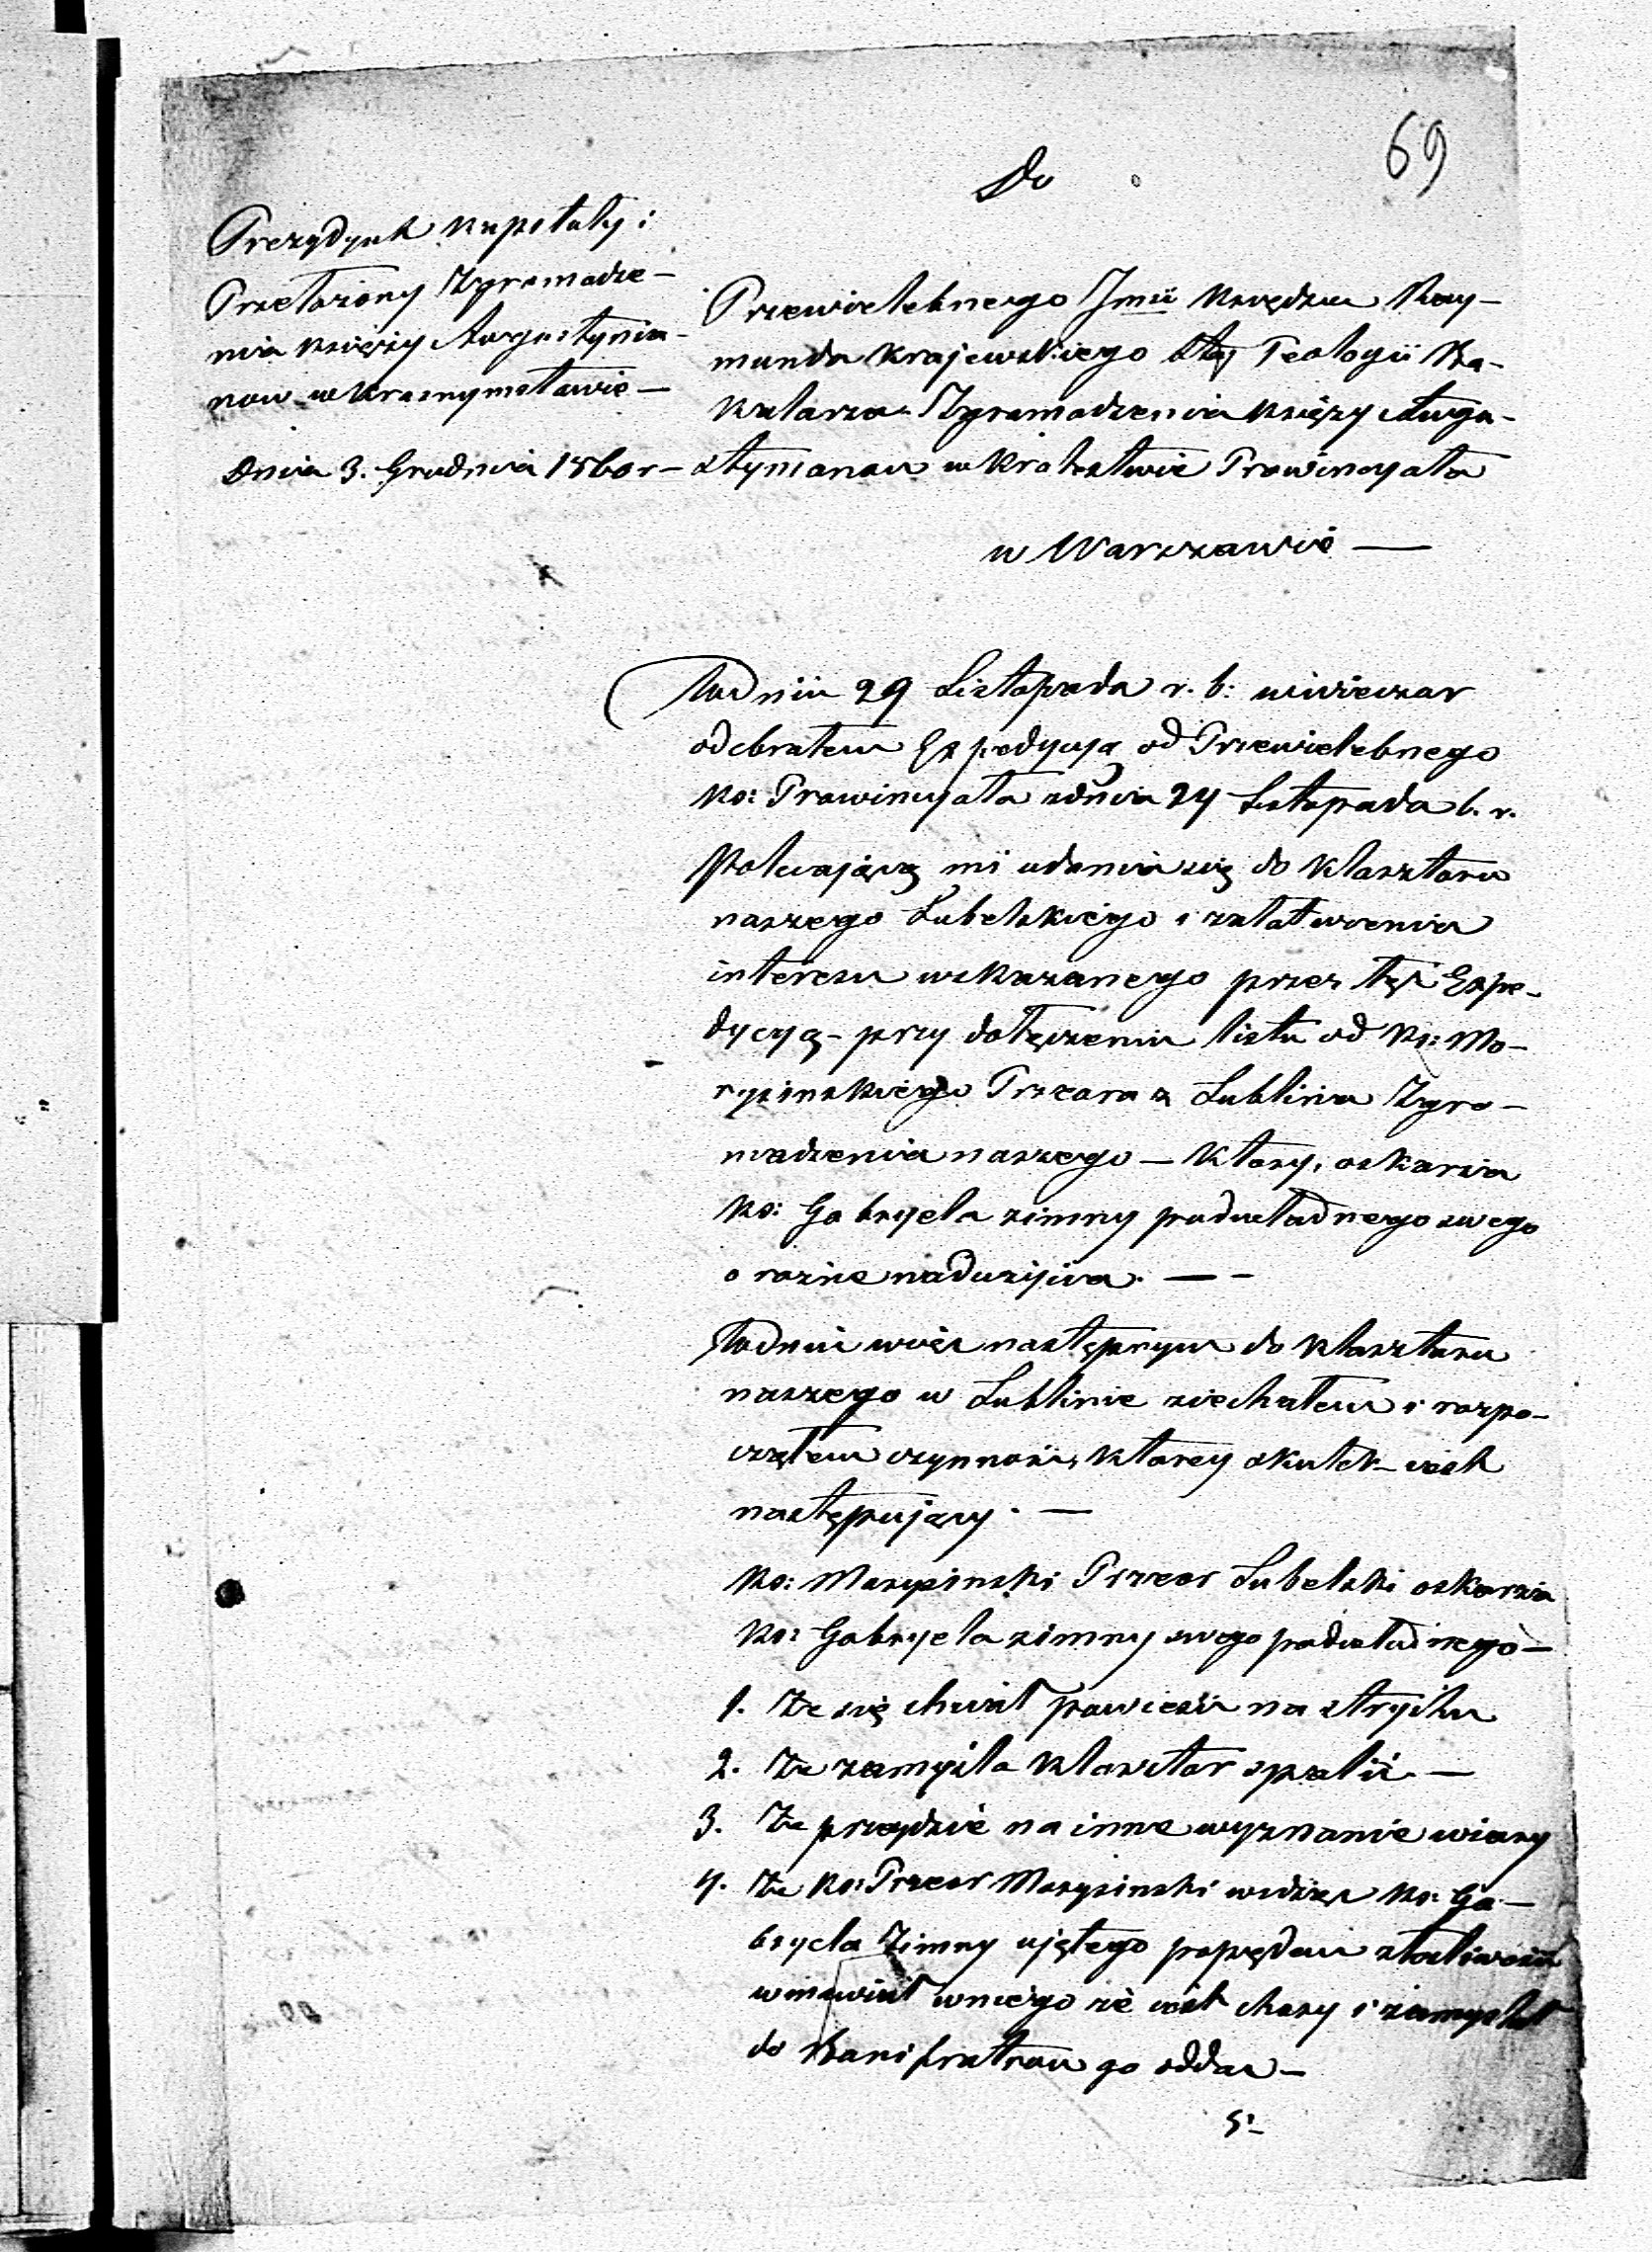 69
Do
Prezydent Kapituły i
Przełożony Zgromadze-
nia Księży Augustynia-
now w Krasnymstawie —
Dnia 3. Grudnia 1860 r —
Przewielebnego Jmci Księdza Ray-
munda Krajewskiego Stej Teologii Ba-
kałarza Zgromadzenia Księży Augu-
stynianow w Krolestwie Prowincyała
w Warszawie —
W dniu 29 Listopada r. b: wieczor
odebrałem Expedycyą od Przewielebnego
Ks: Prowincyała z dnia 24 Listopada b. r.
Polecającą mi udania się do Klasztoru
naszego Lubelskiego i załatwienia
interesu wskazanego przez tęż Expe-
dycyą - przy dołączeniu listu od Ks: Mo-
rysinskiego Przeora z Lublina Zgro-
madzenia naszego — Ktory, oskarża
Ks: Gabryela Zimny podwładnego swego
o rożne nadużycia. —
W dniu więc następnym do Klasztoru
naszego w Lublinie ziechałem i rozpo-
cząłem czynność, Ktorey skutek iest
następujący. —
Ks: Morysinski Przeor Lubelski oskarża
Ks: Gabryela Zimny swego podwładnego —
1. Że się chciał powiesić na strychu
2. Że zamyśla Klasztor spalić —
3. Że przeydzie na inne wyznanie wiary
4. Że Ks: Przeor Morysinski widząc Ks: Ga-
bryela Zimny ujętego popędem złośliwości
wmawiał w niego że iest chory i zamyślał
do Bonifratrow go oddać —
5º